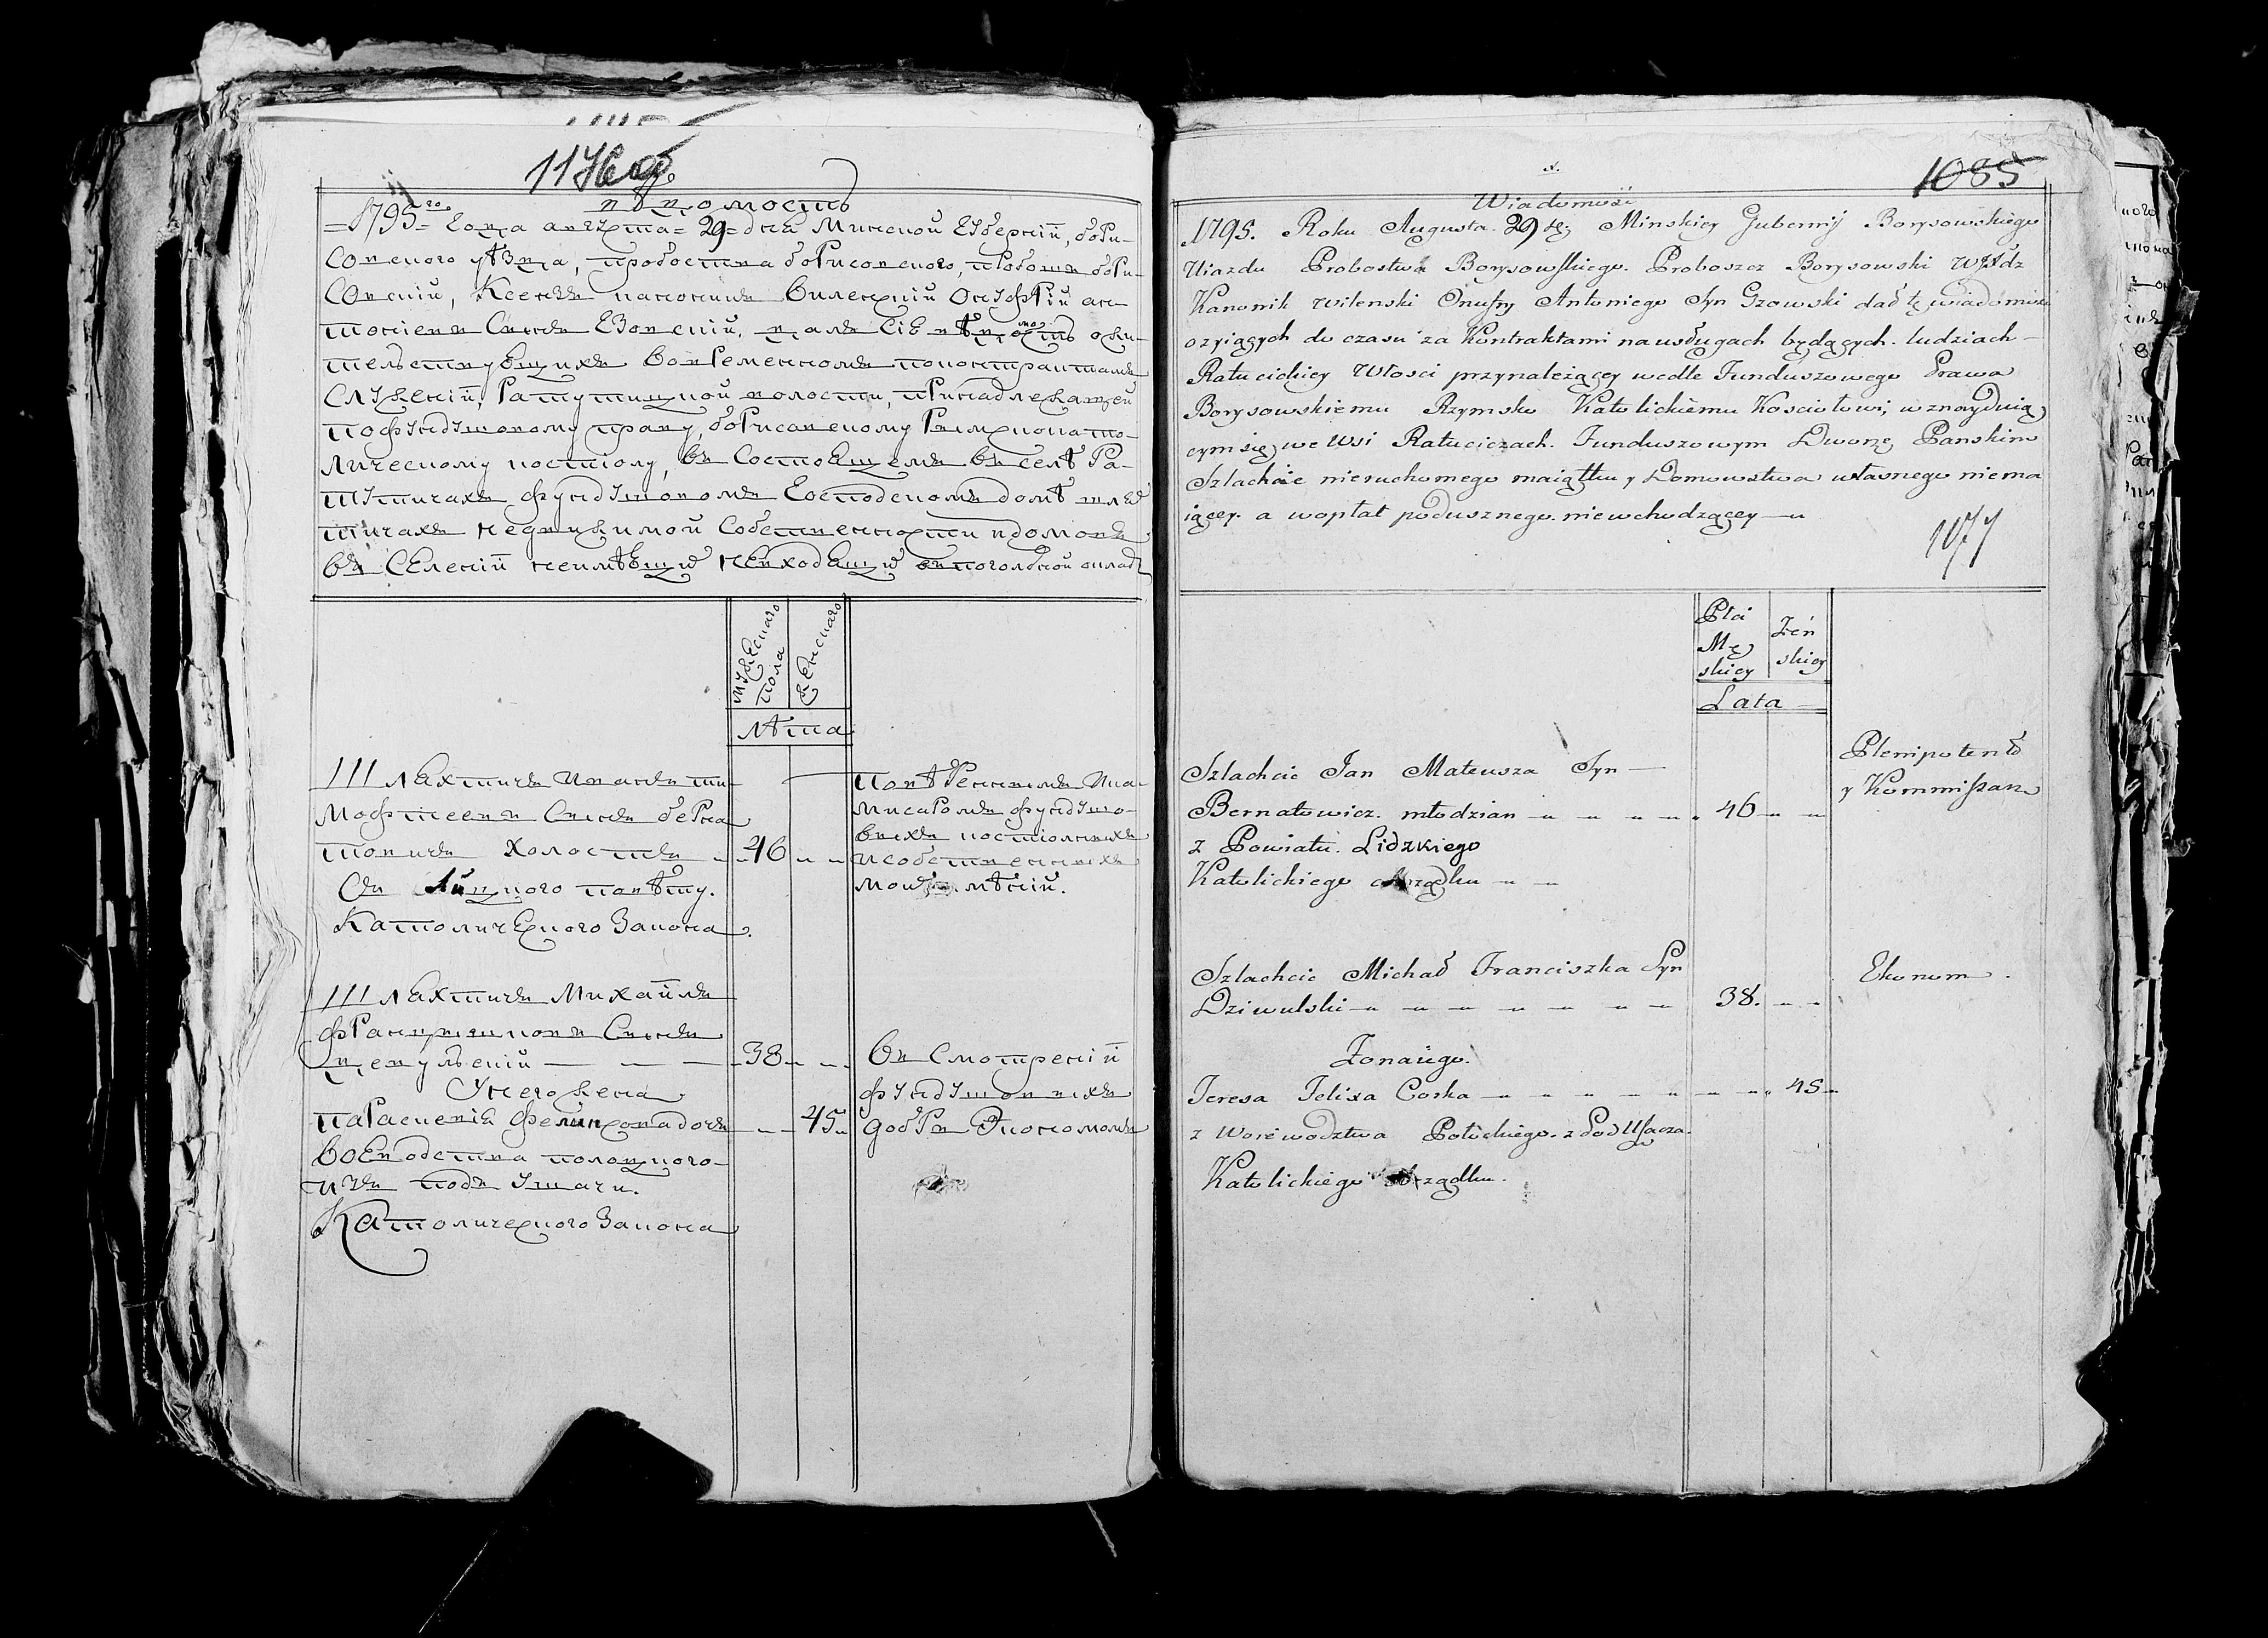 1146 об.
вѣдомость
1795го года августа 29 дня Минской губерніи, бори-
совского уѣзда, пробоства борисовского, пробощъ бори-
совскій, Ксендзъ каноникъ виленскій Онуфрій ан-
тоніевъ сынъ Гзовскій, далъ сію вѣдомость о жи-
тельствующихъ во временномъ по контрактамъ
служеніи, Ратутицкой волости, принадлежащей
по фундушовому праву, борисовскому римскокато-
лическому костіолу, въ состоящемъ въ селѣ Ра-
тутичахъ фундушовомъ господскомъ домѣ шлях
тичахъ недвижимой собственности и домовъ
въ селеніи неимѣющих невходящих въ поголовной окладъ
мужескаго пола
женскаго
лѣта
Шляхтичъ Иванъ ти-
мофтеевъ сынъ берна
товичъ холостъ 46
Съ Лидцкого повѣту.
Католического закона.
повѣреннымъ и ко-
мисаромъ фундушо-
выхъ костіольныхъ
и собственныхъ
моихъ имѣній.
Шляхтичъ Михайлъ
францишковъ сынъ
дзевульскій 38
У него жена
параскевія феликсова дочь 45
воеводства полоцкого
изъ подъ Ушачи.
Католического закона
въ смотреніи
фундушовыхъ
добръ Экономомъ
1085
Wiadomość
1795. Roku Augusta 29 dz. Minskiey Gubernij Borysowskiego
Uiazdu Probostwa Borysowskiego. Proboszcz Borysowski WJXdz
Kanonik Wilenski Onufry Antoniego Syn Gzowski dał tę wiadomość
ozyiących do czasu za Kontraktami na usługach będących ludziach
Ratucickiey Włości przynależącey wedle Funduszowego Prawa
Borysowskiemu Rzymsko Katolickiemu Kosciołowi, w znayduią
cym się we Wsi Ratuciczach. Funduszowym Dworze Panskim
Szlachcie nieruchomego maiątku y Domowstwa własnego niema
iącey. a wopłat podusznego niewchodzącey
1077
Płci Mę skiey
Żeń skiey
Lata
Szlachcic Jan Mateusza Syn
Bernatowicz. młodzian 46
z Powiatu. Lidzkiego
Katolickiego obrządku
Plenipotent
y Kommissarz
Szlachcic Michał Franciszka Syn
Dziwulski 38.
Ekonom.
Żona iego.
Teresa Felixa Corka 45
z Woiewodztwa Połockiego. z Pod Uszacza.
Katolickiego obrządku.